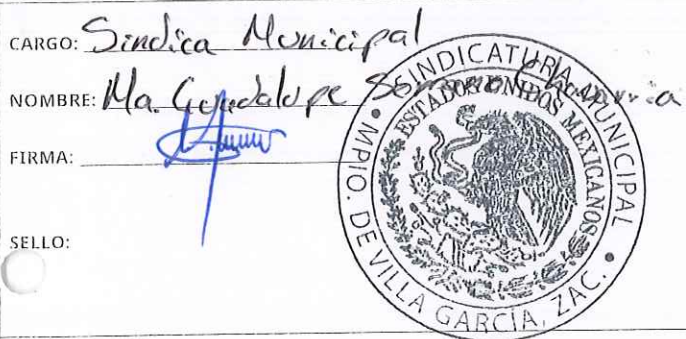 CARGO: Sindica Municipal
NOMBRE: Ma. Guadalupe
FIRMA:
SELLO:
SINDICATURA MUNICIPAL
ESTADOS UNIDOS MEXICANOS
MPIO. DE VILLA GARCÍA, ZAC.